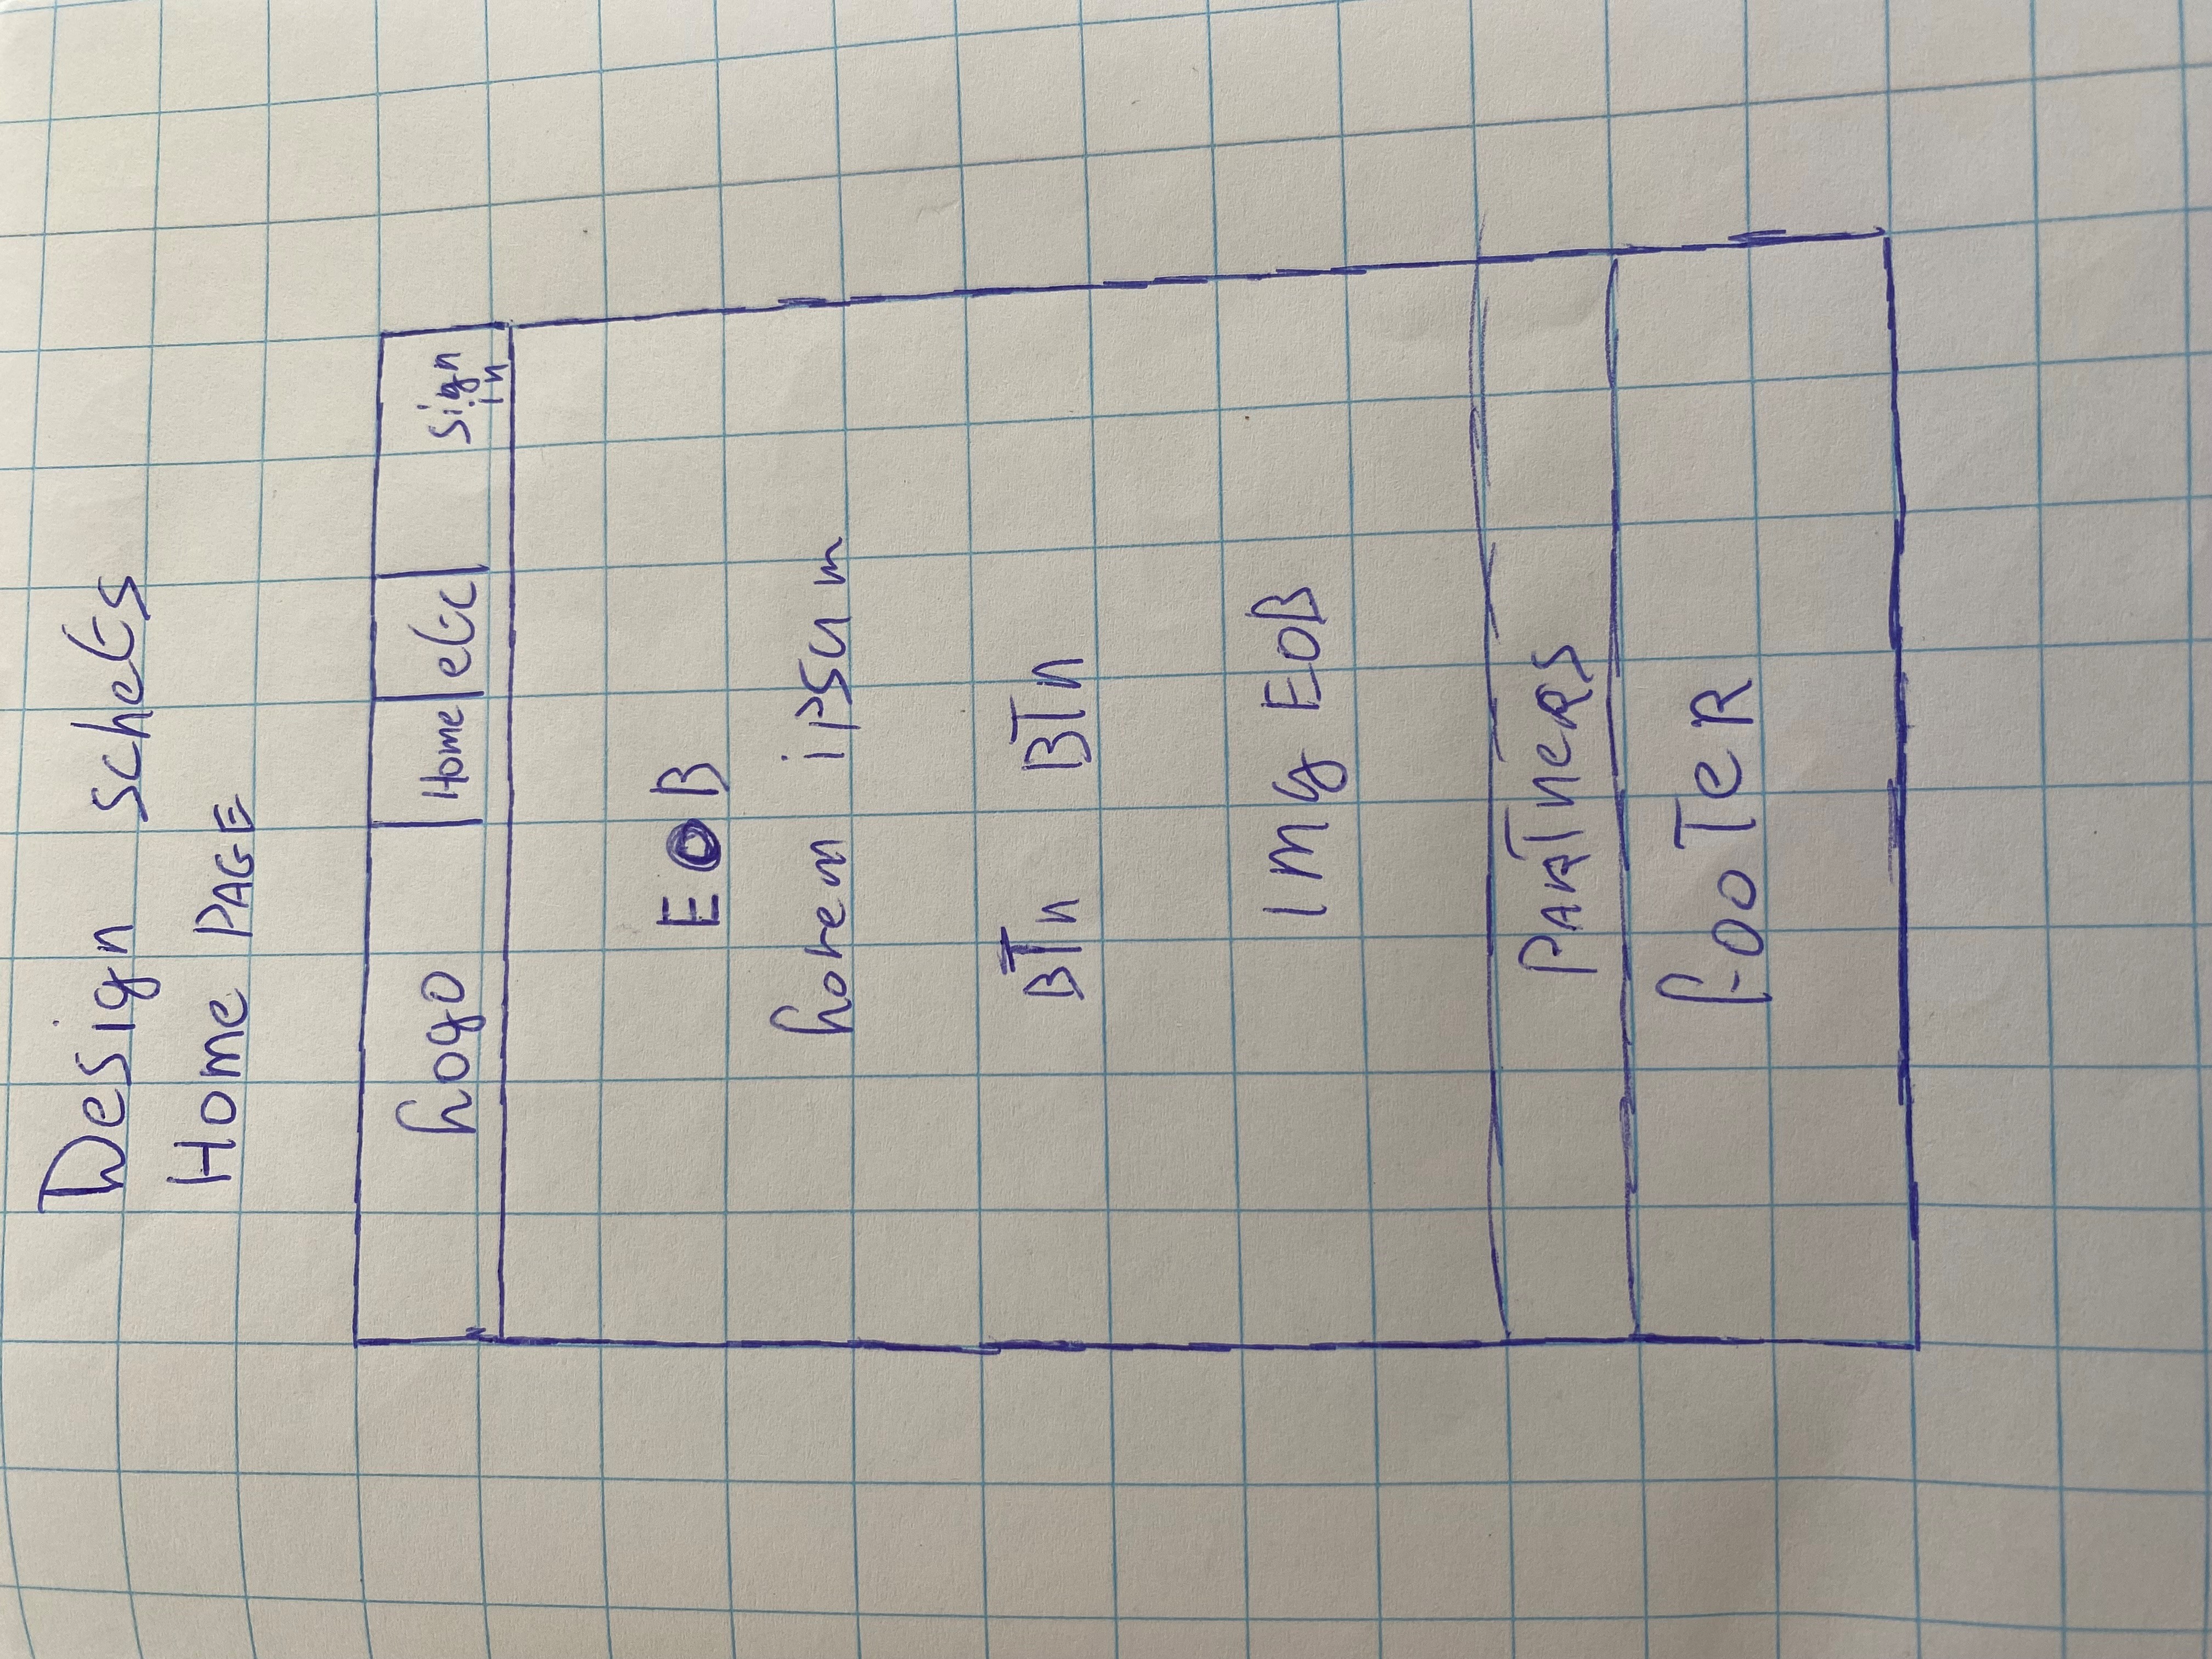 Design schets
Home PAGE
Logo Home etc sign in
EOB
Lorem ipsum
BTn BTn
Img EOB
PARTNERS
FooTeR